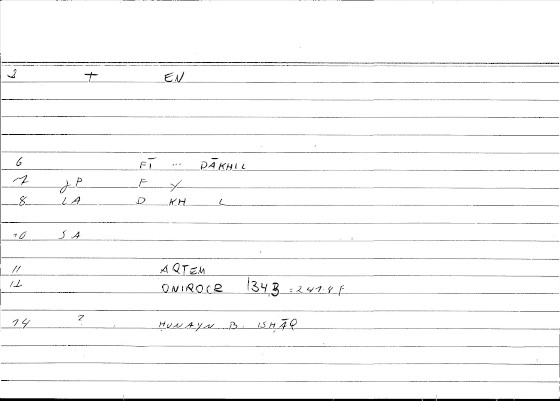 3 + EN
6 FĪ ... DĀKHIL
7 JP F Y
8 LA D KH L
10 SA
11 ARTEM
12 ONIROCR 134,3
14 ? ḤUNAYN B. ISḤĀQ